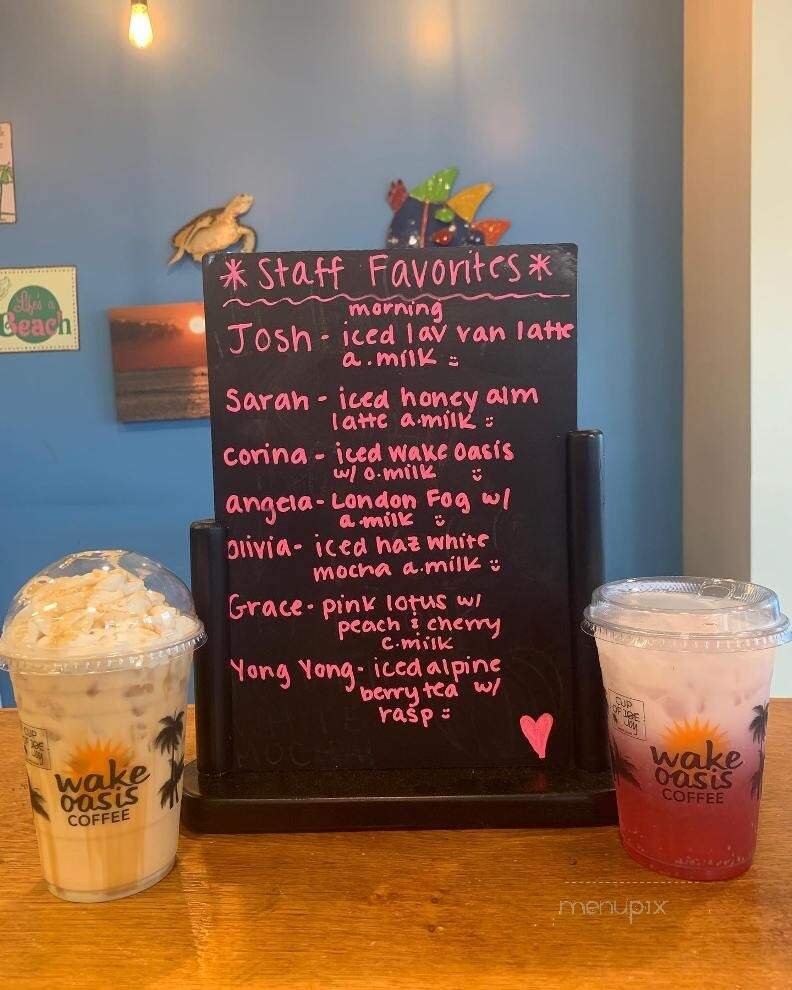 Life's a
Beach
*Staff Favorites*
morning
Josh - iced lav van latte
a.milk :)
Sarah - iced honey alm
latte a.milk :)
corina - iced wake oasis
w/ o.milk :)
angela - London Fog w/
a.milk :)
olivia - iced haz white
mocha a.milk :)
Grace - pink lotus w/
peach & cherry
c.milk
Yong Yong - iced alpine
berry tea w/
rasp :)
CUP
OF ICE
JOY
wake
oasis
COFFEE
CUP
OF ICE
JOY
wake
oasis
COFFEE
menupix